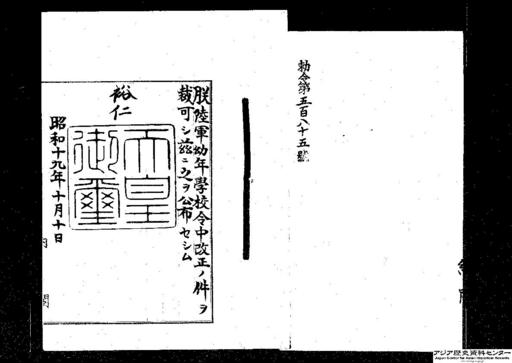 勅令第五百八十五號
朕陸軍幼年學校令中改正ノ件ヲ
裁可シ茲ニ之ヲ公布セシム
裕仁
天皇御璽
昭和十九年十月十日
内閣
アジア歴史資料センター
Japan Center for Asian Historical Records